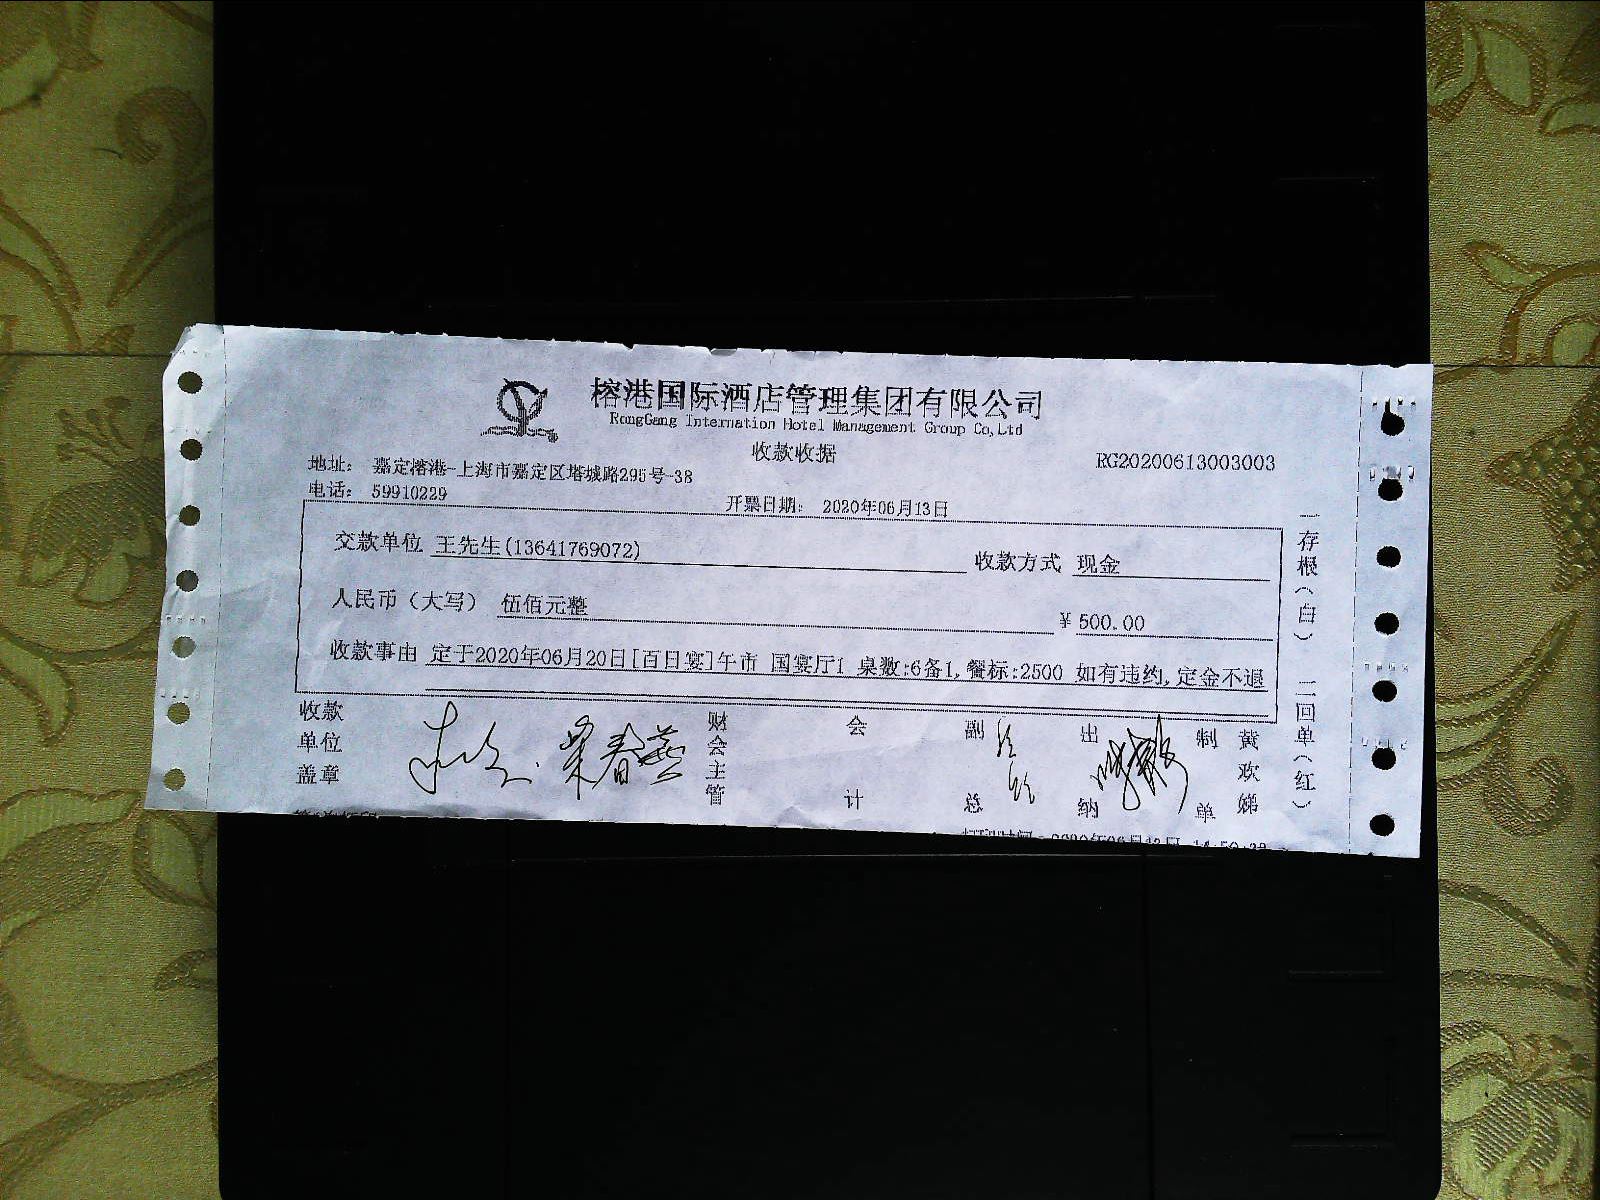 榕港国际酒店管理集团有限公司
RongGang Internation Hotel Management Group Co,Ltd
收款收据
RG20200613003003
地址： 嘉定榕港-上海市嘉定区塔城路295号-38
电话： 59910229
开票日期： 2020年06月13日
交款单位 王先生(13641769072) 收款方式 现金
人民币（大写） 伍佰元整 ¥ 500.00
收款事由 定于2020年06月20日[百日宴]午市 国宴厅1 桌数:6备1,餐标:2500 如有违约,定金不退
一存根（白） 二回单（红）
收款单位盖章
栗春燕
财会主管
会计
副总
出纳
制单
黄欢娣
打印时间：2020年06月13日 14:50: